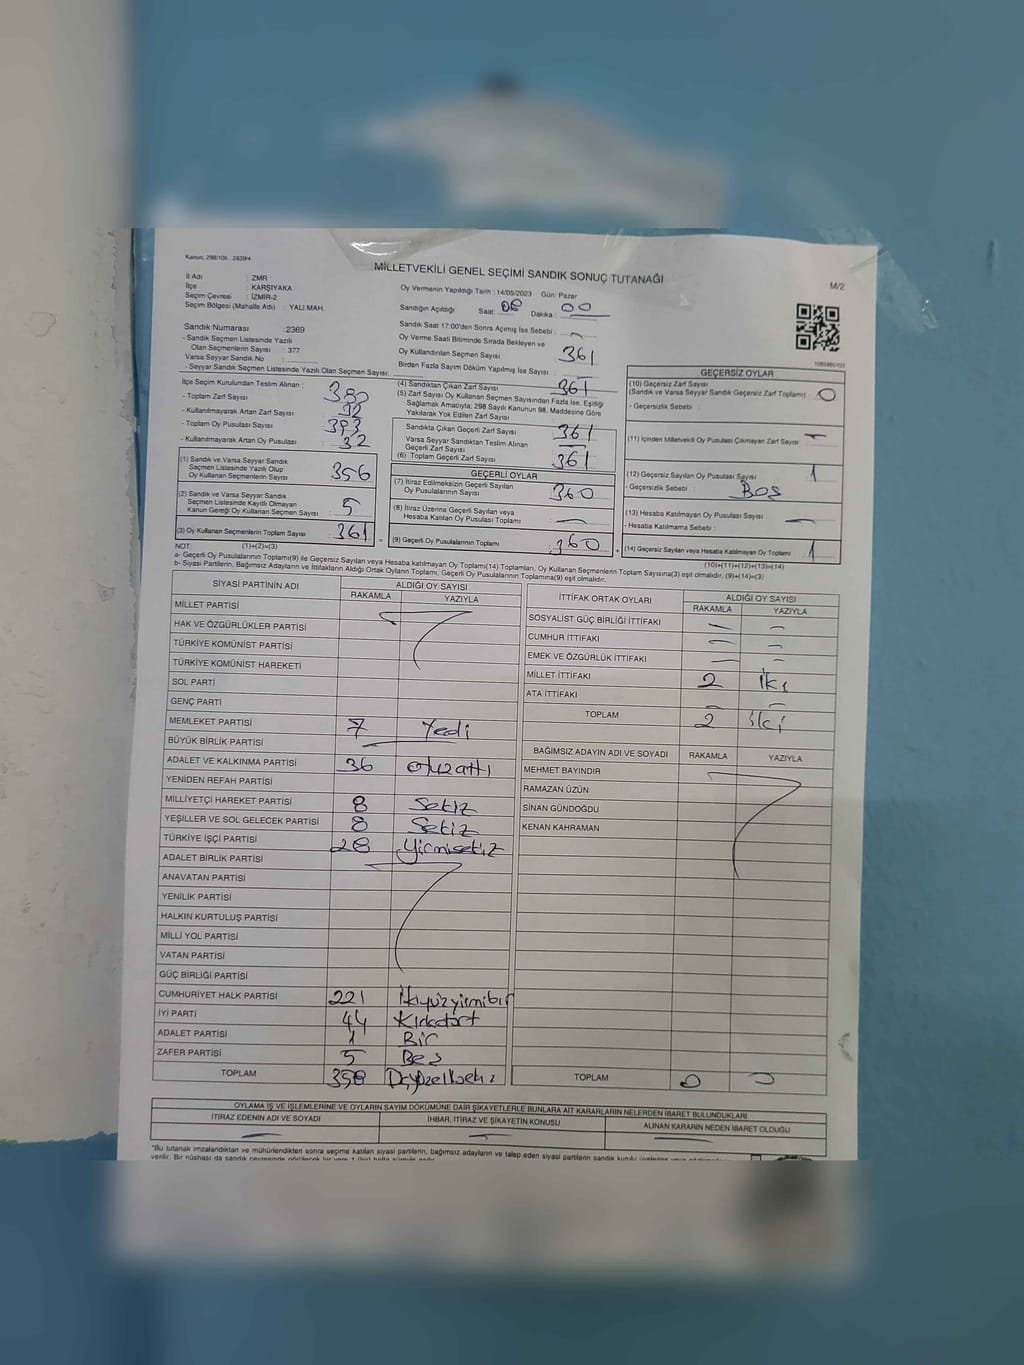 Kanun; 298/105 , 2839/4
MİLLETVEKİLİ GENEL SEÇİMİ SANDIK SONUÇ TUTANAĞI
M/2
İl Adı : ZMR
İlçe : KARŞIYAKA
Seçim Çevresi : İZMİR-2
Seçim Bölgesi (Mahalle Adı) : YALI MAH.
Oy Vermenin Yapıldığı Tarih : 14/05/2023 Gün: Pazar
Sandığın Açıldığı Saat : 08 Dakika : 00
Sandık Saat 17:00'den Sonra Açılmış İse Sebebi : -
Oy Verme Saati Bitiminde Sırada Bekleyen ve
Oy Kullandırılan Seçmen Sayısı 361
Birden Fazla Sayım Döküm Yapılmış İse Sayısı :
Sandık Numarası :2369
- Sandık Seçmen Listesinde Yazılı
Olan Seçmenlerin Sayısı : 377
Varsa Seyyar Sandık No :
- Seyyar Sandık Seçmen Listesinde Yazılı Olan Seçmen Sayısı:
İlçe Seçim Kurulundan Teslim Alınan :
- Toplam Zarf Sayısı
- Kullanılmayarak Artan Zarf Sayısı
- Toplam Oy Pusulası Sayısı : 393
- Kullanılmayarak Artan Oy Pusulası : 32
(1) Sandık ve Varsa Seyyar Sandık
Seçmen Listesinde Yazılı Olup
Oy Kullanan Seçmenlerin Sayısı : 356
(2) Sandık ve Varsa Seyyar Sandık
Seçmen Listesinde Kayıtlı Olmayan
Kanun Gereği Oy Kullanan Seçmen Sayısı : 5
(3) Oy Kullanan Seçmenlerin Toplam Sayısı : 361
(4) Sandıktan Çıkan Zarf Sayısı : 361
(5) Zarf Sayısı Oy Kullanan Seçmen Sayısından Fazla İse, Eşitliği
Sağlamak Amacıyla; 298 Sayılı Kanunun 98. Maddesine Göre
Yakılarak Yok Edilen Zarf Sayısı
Sandıkta Çıkan Geçerli Zarf Sayısı : 361
Varsa Seyyar Sandıktan Teslim Alınan
Geçerli Zarf Sayısı : -
(6) Toplam Geçerli Zarf Sayısı : 361
GEÇERLİ OYLAR
(7) İtiraz Edilmeksizin Geçerli Sayılan
Oy Pusulalarının Sayısı : 360
(8) İtiraz Üzerine Geçerli Sayılan veya
Hesaba Katılan Oy Pusulası Toplamı : -
(9) Geçerli Oy Pusulalarının Toplamı : 360
GEÇERSİZ OYLAR
(10) Geçersiz Zarf Sayısı
(Sandık ve Varsa Seyyar Sandık Geçersiz Zarf Toplamı) : 0
- Geçersizlik Sebebi :
(11) İçinden Milletvekili Oy Pusulası Çıkmayan Zarf Sayısı : -
(12) Geçersiz Sayılan Oy Pusulası Sayısı : 1
- Geçersizlik Sebebi : Boş
(13) Hesaba Katılmayan Oy Pusulası Sayısı : -
- Hesaba Katılmama Sebebi :
(14) Geçersiz Sayılan veya Hesaba Katılmayan Oy Toplamı : 1
NOT: (1)+(2)=(3)
(10)+(11)+(12)+(13)=(14)
a- Geçerli Oy Pusulalarının Toplamı(9) ile Geçersiz Sayılan veya Hesaba katılmayan Oy Toplamı(14) Toplamları, Oy Kullanan Seçmenlerin Toplam Sayısına(3) eşit olmalıdır. (9)+(14)=(3)
b- Siyasi Partilerin, Bağımsız Adayların ve İttifakların Aldığı Ortak Oyların Toplamı, Geçerli Oy Pusulalarının Toplamına(9) eşit olmalıdır.
SİYASİ PARTİNİN ADI ALDIĞI OY SAYISI
RAKAMLA YAZIYLA
MİLLET PARTİSİ
HAK VE ÖZGÜRLÜKLER PARTİSİ
TÜRKİYE KOMÜNİST PARTİSİ
TÜRKİYE KOMÜNİST HAREKETİ
SOL PARTİ
GENÇ PARTİ
MEMLEKET PARTİSİ 7 Yedi
BÜYÜK BİRLİK PARTİSİ
ADALET VE KALKINMA PARTİSİ 36 otuzaltı
YENİDEN REFAH PARTİSİ
MİLLİYETÇİ HAREKET PARTİSİ 8 Sekiz
YEŞİLLER VE SOL GELECEK PARTİSİ 8 Sekiz
TÜRKİYE İŞÇİ PARTİSİ 28 Yirmisekiz
ADALET BİRLİK PARTİSİ
ANAVATAN PARTİSİ
YENİLİK PARTİSİ
HALKIN KURTULUŞ PARTİSİ
MİLLİ YOL PARTİSİ
VATAN PARTİSİ
GÜÇ BİRLİĞİ PARTİSİ
CUMHURİYET HALK PARTİSİ 221 İkiyüzyirmibir
İYİ PARTİ 44 Kırkdört
ADALET PARTİSİ 1 Bir
ZAFER PARTİSİ 5 Beş
TOPLAM 358
İTTİFAK ORTAK OYLARI ALDIĞI OY SAYISI
RAKAMLA YAZIYLA
SOSYALİST GÜÇ BİRLİĞİ İTTİFAKI - -
CUMHUR İTTİFAKI - -
EMEK VE ÖZGÜRLÜK İTTİFAKI - -
MİLLET İTTİFAKI 2 İki
ATA İTTİFAKI - -
TOPLAM 2 iki
BAĞIMSIZ ADAYIN ADI VE SOYADI RAKAMLA YAZIYLA
MEHMET BAYINDIR
RAMAZAN ÜZÜN
SİNAN GÜNDOĞDU
KENAN KAHRAMAN
TOPLAM 0 0
OYLAMA İŞ VE İŞLEMLERİNE VE OYLARIN SAYIM DÖKÜMÜNE DAİR ŞİKAYETLERLE BUNLARA AİT KARARLARIN NELERDEN İBARET BULUNDUKLARI
İTİRAZ EDENİN ADI VE SOYADI İHBAR, İTİRAZ VE ŞİKAYETİN KONUSU ALINAN KARARIN NEDEN İBARET OLDUĞU
- - -
"Bu tutanak imzalandıktan ve mühürlendikten sonra seçime katılan siyasi partilerin, bağımsız adayların ve talep eden siyasi partilerin sandık kurulu